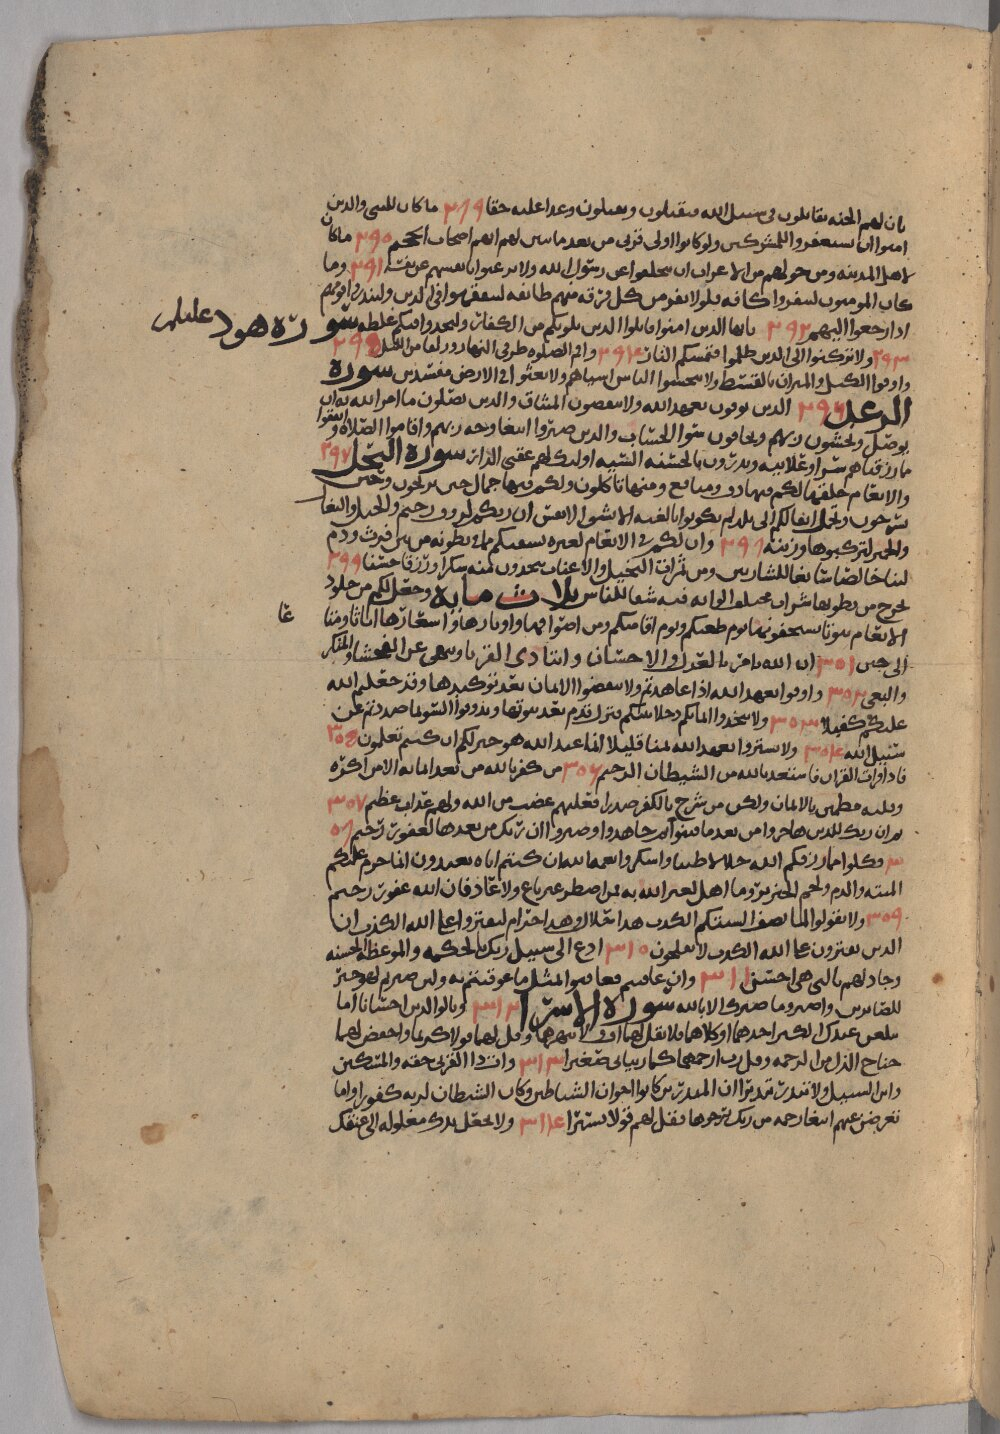 بان لهم الجنه يقاتلون في سبيل الله فيقتلون ويقتلون وعدا عليه حقا ٢٨٩ ما كان للنبي والذين
امنوا ان يستغفروا للمشركين ولو كانوا اولى قربى من بعد ما تبين لهم انهم اصحاب الجحيم ٢٩٠ ما كان
لاهل المدينه ومن حولهم من الاعراب ان يتخلفوا عن رسول الله ولا يرغبوا بانفسهم عن نفسه ٢٩١ وما
كان المومنون لينفروا كافه فلولا نفر من كل فرقه منهم طائفه ليتفقهوا في الدين ولينذروا قومهم
اذا رجعوا اليهم ٢٩٢ يايها الذين امنوا قاتلوا الذين يلونكم من الكفار وليجدوا فيكم غلظه سورة هود عليلم
٢٩٣ ولا تركنوا الى الذين ظلموا فتمسكم النار ٢٩٤ واقم الصلوه طرفي النهار وزلفا من الليل ٢٩٥
واوفوا الكيل والميزان بالقسط ولا تبخسوا الناس اشياهم ولا تعثوا في الارض مفسدين سورة
الرعد ٢٩٦ الذين يوفون بعهد الله ولا ينقضون الميثاق والذين يصلون ما امر الله به ان
يوصل ويخشون ربهم ويخافون سوا الحساب والذين صبروا ابتغا وجه ربهم واقاموا الصلاة وانفقوا
مما رزقناهم سرا وعلانيه ويدرون بالحسنه السيه اوليك لهم عقبى الدار سورة النحل ٢٩٧
والانعام خلقها لكم فيها دف ومنافع ومنها تاكلون ولكم فيها جمال حين تريحون وحين
تسرحون وتحمل اثقالكم الى بلد لم تكونوا بالغيه الا بشق الانفس ان ربكم لروف رحيم والخيل والبغال
والحمير لتركبوها وزينه ٢٩٨ وان لكم في الانعام لعبره نسقيكم مما في بطونه من بين فرث ودم
لبنا خالصا سائغا للشاربين ومن ثمرات النخيل والاعناب تتخذون منه سكرا ورزقا حسنا ٢٩٩
يخرج من بطونها شراب مختلف الوانه فيه شفا للناس ثلاث مايه وجعل لكم من جلود
الانعام بيوتا تستخفونها يوم ظعنكم ويوم اقامتكم ومن اصوافها واوبارها واشعارها اثاثا ومتا
عا
الى حين ٣٠١ ان الله يامر بالعدل والاحسان وايتا ذي القربا وينهى عن الفحشا والمنكر
والبغي ٣٠٢ واوفوا بعهد الله اذا عاهدتم ولا تنقضوا الايمان بعد توكيدها وقد جعلتم الله
عليكم كفيلا ٣٠٣ ولا تتخذوا ايمانكم دخلا بينكم فتزل قدم بعد ثبوتها وتذوقوا السو بما صددتم عن
سبيل الله ٣٠٤ ولا تشتروا بعهد الله ثمنا قليلا انما عند الله هو خير لكم ان كنتم تعلمون ٣٠٥
فاذا قرات القران فاستعذ بالله من الشيطان الرجيم ٣٠٦ من كفر بالله من بعد ايمانه الا من اكره
وقلبه مطمين بالايمان ولكن من شرح بالكفر صدرا فعليهم غضب من الله ولهم عذاب عظيم ٣٠٧
ثم ان ربك للذين هاجروا من بعد ما فتنوا ثم جاهدوا وصبروا ان ربك من بعدها لغفور رحيم ٠٨
٣ فكلوا مما رزقكم الله حلالا طيبا واشكروا نعمة الله ان كنتم اياه تعبدون انما حرم عليكم
الميته والدم ولحم الخنزير وما اهل لغير الله به فمن اضطر غير باغ ولا عاد فان الله غفور رحيم
٣٠٩ ولا تقولوا لما تصف السنتكم الكذب هذا حلال وهذا حرام لتفتروا على الله الكذب ان
الذين يفترون على الله الكذب لا يفلحون ٣١٠ ادع الى سبيل ربك بالحكمه والموعظه الحسنه
وجادلهم بالتي هي احسن ٣١١ وان عاقبتم فعاقبوا بمثل ما عوقبتم به ولين صبرتم لهو خير
للصابرين واصبر وما صبرك الا بالله سورة الاسرا ٣١٢ وبالوالدين احسانا اما
يبلغن عندك الكبر احدهما او كلاهما فلا تقل لهما اف ولا تنهرهما وقل لهما قولا كريما واخفض لهما
جناح الذل من الرحمه وقل رب ارحمهما كما ربياني صغيرا ٣١٣ وات ذا القربى حقه والمسكين
وابن السبيل ولا تبذر تبذيرا ان المبذرين كانوا اخوان الشياطين وكان الشيطان لربه كفورا واما
تعرضن عنهم ابتغا رحمه من ربك ترجوها فقل لهم قولا ميسورا ٣١٤ ولا تجعل يدك مغلوله الى عنقك